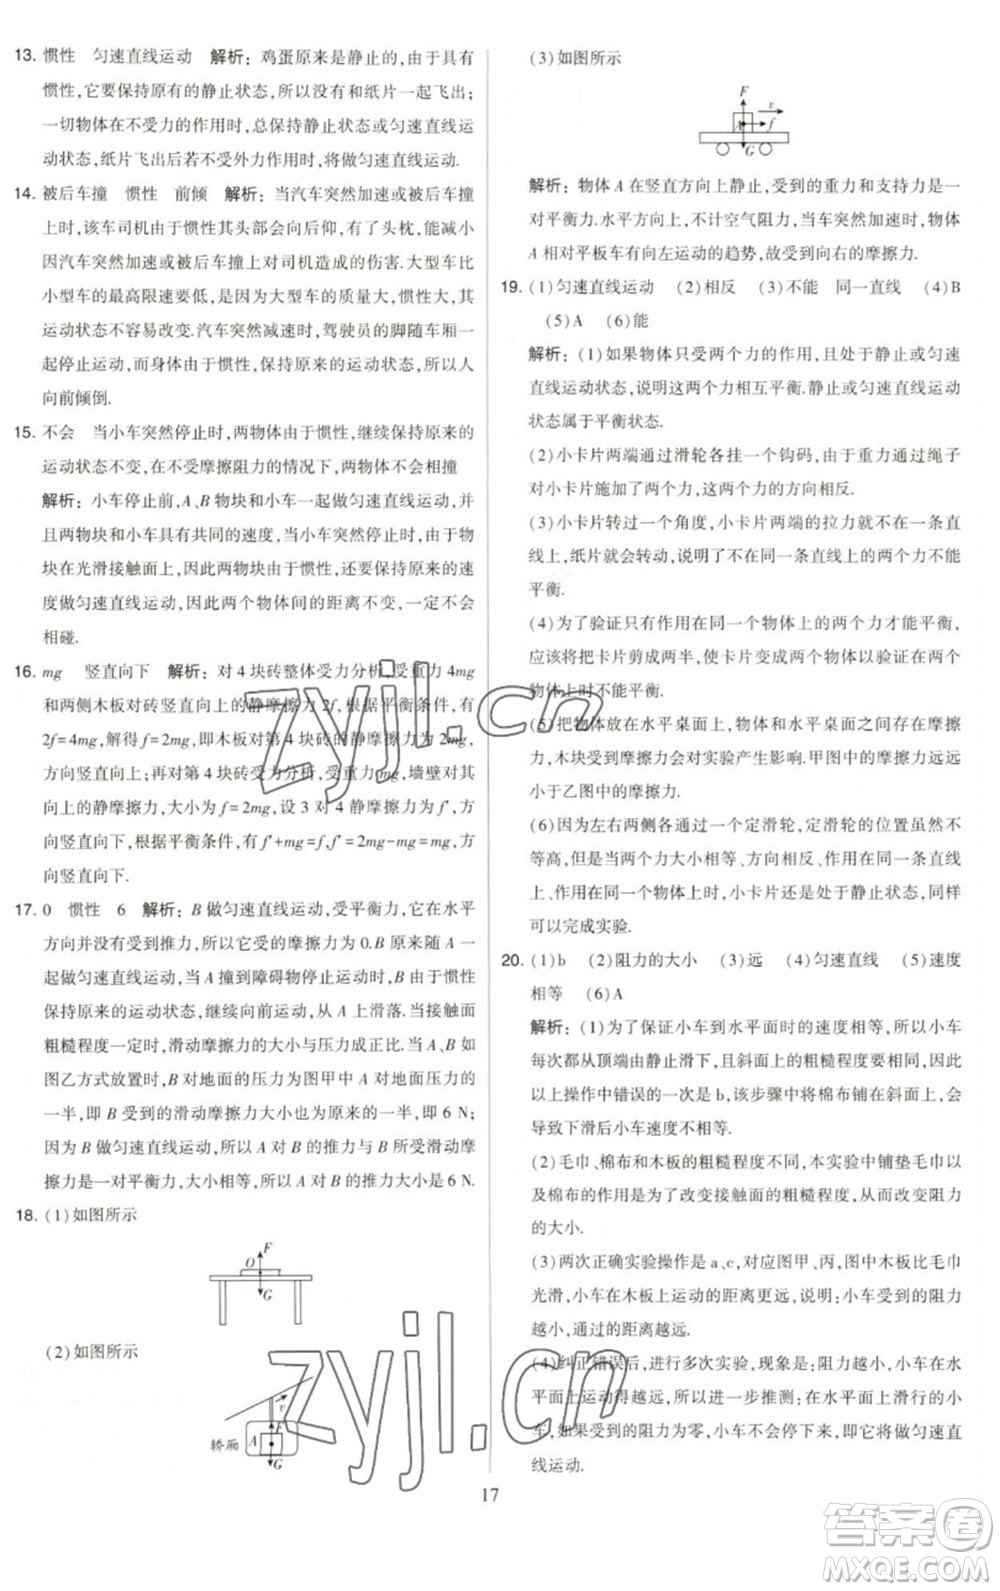 13. 惯性　匀速直线运动　解析:鸡蛋原来是静止的,由于具有
惯性,它要保持原有的静止状态,所以没有和纸片一起飞出;
一切物体在不受力的作用时,总保持静止状态或匀速直线运
动状态,纸片飞出后所有外力作用时,将做匀速直线运动.
14. 被后车撞　惯性　前倾　解析:当汽车突然加速或在后车撞
上时,该车司机由于惯性其头部会向后仰,有了头枕,能减小
因汽车突然加速或被后车撞上对司机造成的伤害.大型车比
小型车的最高限速要低,这是因为大型车的质量大,惯性大,其
运动状态不容易改变.汽车突然减速时,驾驶员的脚随车厢一
起停止运动,而身体由于惯性,保持原来的运动状态,所以人
向前倾倒.
15. 不会　当小车突然停止时,两物体由于惯性,继续保持原来的
运动状态不变,在不受摩擦阻力的情况下,两物体不会相撞
解析:小车停止前,A、B物块和小车一起做匀速直线运动,并
且两物块和小车具有共同的速度;当小车突然停止时,由于物
块在光滑接触面上,因此两物块由于惯性,还要保持原来的速
度做匀速直线运动,因此两个物体间的距离不变,一定不会
相碰.
16. mg　竖直向下　解析:对4块砖整体受力分析,受重力4mg
和两侧木板对砖竖直向上的静摩擦力2f,根据平衡条件,有
2f=4mg,解得f=2mg,即木板对第4块砖的静摩擦力为2mg,
方向竖直向上;再对第4块砖受力分析,受重力mg,墙壁对其
向上的静摩擦力,大小为f=2mg,设3对4静摩擦力为f′,
方向竖直向下,根据平衡条件,有f′+mg=f,f′=2mg-mg=mg,方
向竖直向下.
17. 0　惯性　6　解析:B做匀速直线运动,受平衡力,它在水平
方向并没有受到推力,所以它受的摩擦力为0.B原来随A一
起做匀速直线运动,当A撞到障碍物停止运动时,B由于惯性
保持原来的运动状态,继续向前运动,从A上滑落.当接触面
粗糙程度一定时,滑动摩擦力的大小与压力成正比.当AB如
图乙方式放置时,B对地面的压力为图甲中A对地面压力的
一半,即B受到的滑动摩擦力为12 N的一半,即为6 N;
因为B做匀速直线运动,所以A对B的推力与B所受滑动摩
擦力是一对平衡力,大小相等,所以A对B的推力大小是6 N.
18. (1)如图所示
F
O
G
(2)如图所示
v
f
轿厢
A
G
(3)如图所示
F
v
A
f
G
解析:物体A在竖直方向上静止,受到的重力和支持力是一
对平衡力.水平方向上,不计空气阻力,当车突然加速时,物体
A相对平板车有向左运动的趋势,故受到向右的摩擦力.
19. (1)匀速直线运动　(2)相反　(3)不能　同一直线　(4)B
(5)A　(6)能
解析:(1)如果物体只受两个力的作用,且处于静止或匀速
直线运动状态,说明这两个力相互平衡.静止或匀速直线运动
状态属于平衡状态.
(2)小卡片两端通过滑轮各挂一个钩码,由图可以看出绳子
对小卡片施加了两个力,这两个力的方向相反.
(3)小卡片转过一个角度,小卡片两端的拉力就不在一条直
线上,纸片就会转动,说明了不在同一直线上的两个力不能
平衡.
(4)为了验证只有作用在同一物体上的两个力才能平衡,
应该将把卡片剪成两半,使卡片变成两个物体,说明不在同一
物体上时不能平衡.
(5)把物体放在水平桌面上,物体和水平桌面之间存在摩擦
力,木块受到摩擦力会对实验产生影响.甲图中的摩擦力远远
小于乙图中的摩擦力.
(6)因为左右两侧各通过一个定滑轮,定滑轮的位置虽然不
等高,但所受两个力大小相等、方向相反、作用在同一条直线
上、作用在同一个物体上时,小卡片还是处于静止状态,同样
可以完成实验.
20. (1)b　(2)阻力的大小　(3)远　(4)匀速直线　(5)速度
相等　(6)A
解析:(1)为了保证小车到水平面时的速度相等,所以小车
每次都从顶端由静止滑下,且斜面上的粗糙程度不变,因此
以上操作中错误的一次是b,该步骤中将棉布铺在斜面上,会
导致下滑后小车速度不相等.
(2)毛巾、棉布和木板的粗糙程度不同,本实验中铺垫毛巾以
及棉布的作用是为了改变接触面的粗糙程度,从而改变阻力
的大小.
(3)两次正确实验操作是a、c,对应图甲、丙,图中木板比毛巾
光滑,小车在木板上运动的距离更远,说明小车受到的阻力
越小,通过的距离越远.
(4)纠正错误后,进行多次实验,现象是:阻力越小,小车在水
平面上运动得越远,进一步推测:在水平面上滑行的小
车,如果受到的阻力为零,小车不会停下来,将做匀速直
线运动.
17
zyjl.cn
zyjl.cn
答案圈
MXQE.COM